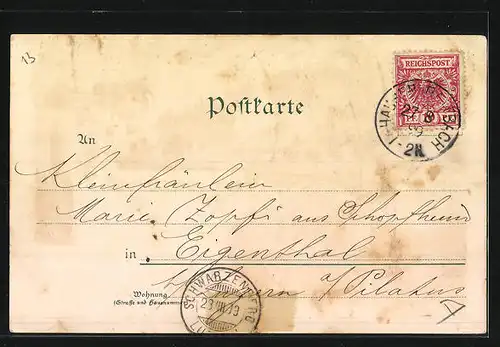 13
REICHSPOST
Postkarte
An
Kleinfräulein
Marie Zopfi aus Schopfheim
in Eigenthal
Pilatus
Wohnung
(Straße und Hausnummer)
SCHWARZENBERG
23 VIII 99